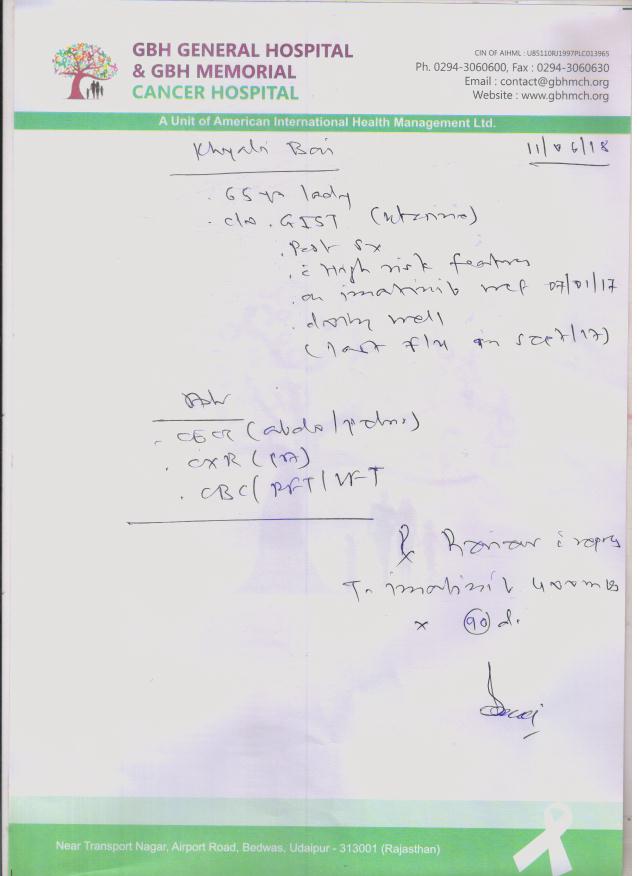 GBH GENERAL HOSPITAL
& GBH MEMORIAL
CANCER HOSPITAL
CIN OF AIHML : U85110RJ1997PLC013965
Ph. 0294-3060600, Fax : 0294-3060630
Email : contact@gbhmch.org
Website : www.gbhmch.org
A Unit of American International Health Management Ltd.
Khyali Bai
11/06/18
. 65 yr lady
. c/o . GIST
. Post Sx
. c̄ High risk features
. on imatinib wef 07/01/17
. doing well
(last f/u in Sept/17)
Adv
. CECT (abdo/pelvis)
. CXR (PA)
. CBC/ RFT/ LFT
℞ Review c̄ reports
T. imatinib 400 mg
x 90 d.
Near Transport Nagar, Airport Road, Bedwas, Udaipur - 313001 (Rajasthan)